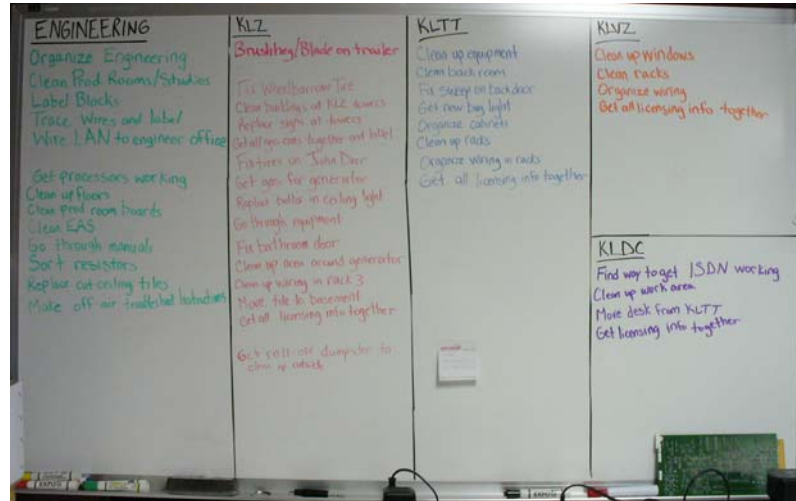 ENGINEERING
Organize Engineering
Clean Prod. Rooms/Studios
Label Blocks
Trace Wires and label
Wire LAN to engineer office
Get processors working
Clean up floors
Clean prod room boards
Clean EAS
Go through manuals
Sort resistors
Replace cut ceiling tiles
Make off air
KLZ
Brushhog/Blade on trailer
Fix Wheelbarrow Tire
Clean buildings at KLZ towers
Replace signs at towers
Get all gas cans together and label
Fix tires on John Deer
Get gas for generator
Replace bulbs in ceiling light
Go through equipment
Fix bathroom door
Clean up area around generator
Clean up wiring in rack 3
Move file to basement
Get all licensing info together
Get roll off dumpster to
clean up outside
KLTT
Clean up equipment
Clean back room
Fix sweep on back door
Get new bug light
Organize cabinets
Clean up racks
Organize wiring in racks
Get all licensing info together
KLVZ
Clean up windows
Clean racks
Organize wiring
Get all licensing info together
KLDC
Find way to get ISDN working
Clean up work area
Move desk from KLTT
Get licensing info together
EXPO